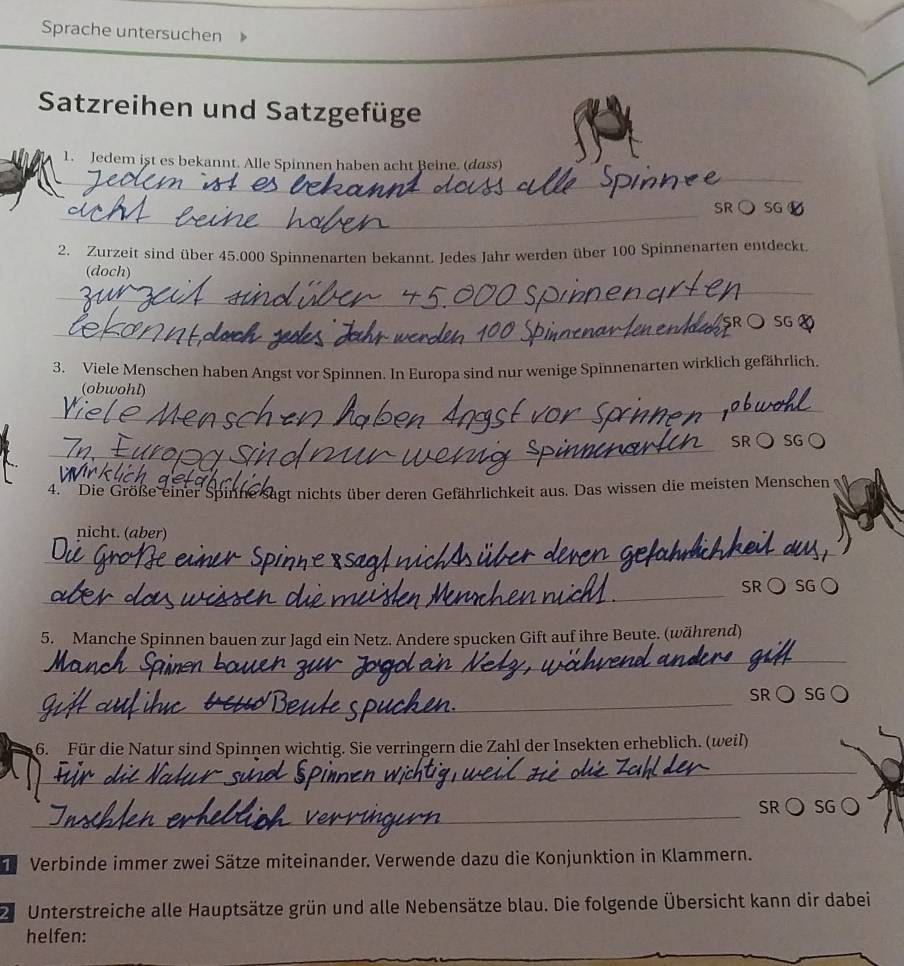 Sprache untersuchen
Satzreihen und Satzgefüge
1. Jedem ist es bekannt. Alle Spinnen haben acht Beine. (dass)
Jedem ist es bekannt dass alle Spinnee
acht beine haben SR ○ SG ⊗
2. Zurzeit sind über 45.000 Spinnenarten bekannt. Jedes Jahr werden über 100 Spinnenarten entdeckt.
(doch)
zurzeit sind über 45.000 Spinnenarten
bekannt, doch jedes Jahr werden 100 Spinnenarten SR ○ SG ⊗
3. Viele Menschen haben Angst vor Spinnen. In Europa sind nur wenige Spinnenarten wirklich gefährlich.
(obwohl)
Viele Menschen haben Angst vor Spinnen, obwohl
In Europa sind nur wenig Spinnenarten SR ○ SG ○
wirklich gefährlich
4. Die Größe einer Spinne sagt nichts über deren Gefährlichkeit aus. Das wissen die meisten Menschen
nicht. (aber)
Die Große einer Spinne sagt nichts über deren gefahrlichkeit aus,
aber das wissen die meisten Menschen nicht. SR ○ SG ○
5. Manche Spinnen bauen zur Jagd ein Netz. Andere spucken Gift auf ihre Beute. (während)
Manch Spinen bauen zur Jagd ein Netz, während andere gift
gift auf ihre Beute spucken. SR ○ SG ○
6. Für die Natur sind Spinnen wichtig. Sie verringern die Zahl der Insekten erheblich. (weil)
Für die Natur sind Spinnen wichtig, weil sie die Zahl der
Insekten erheblich verringern SR ○ SG ○
1 Verbinde immer zwei Sätze miteinander. Verwende dazu die Konjunktion in Klammern.
2 Unterstreiche alle Hauptsätze grün und alle Nebensätze blau. Die folgende Übersicht kann dir dabei
helfen: